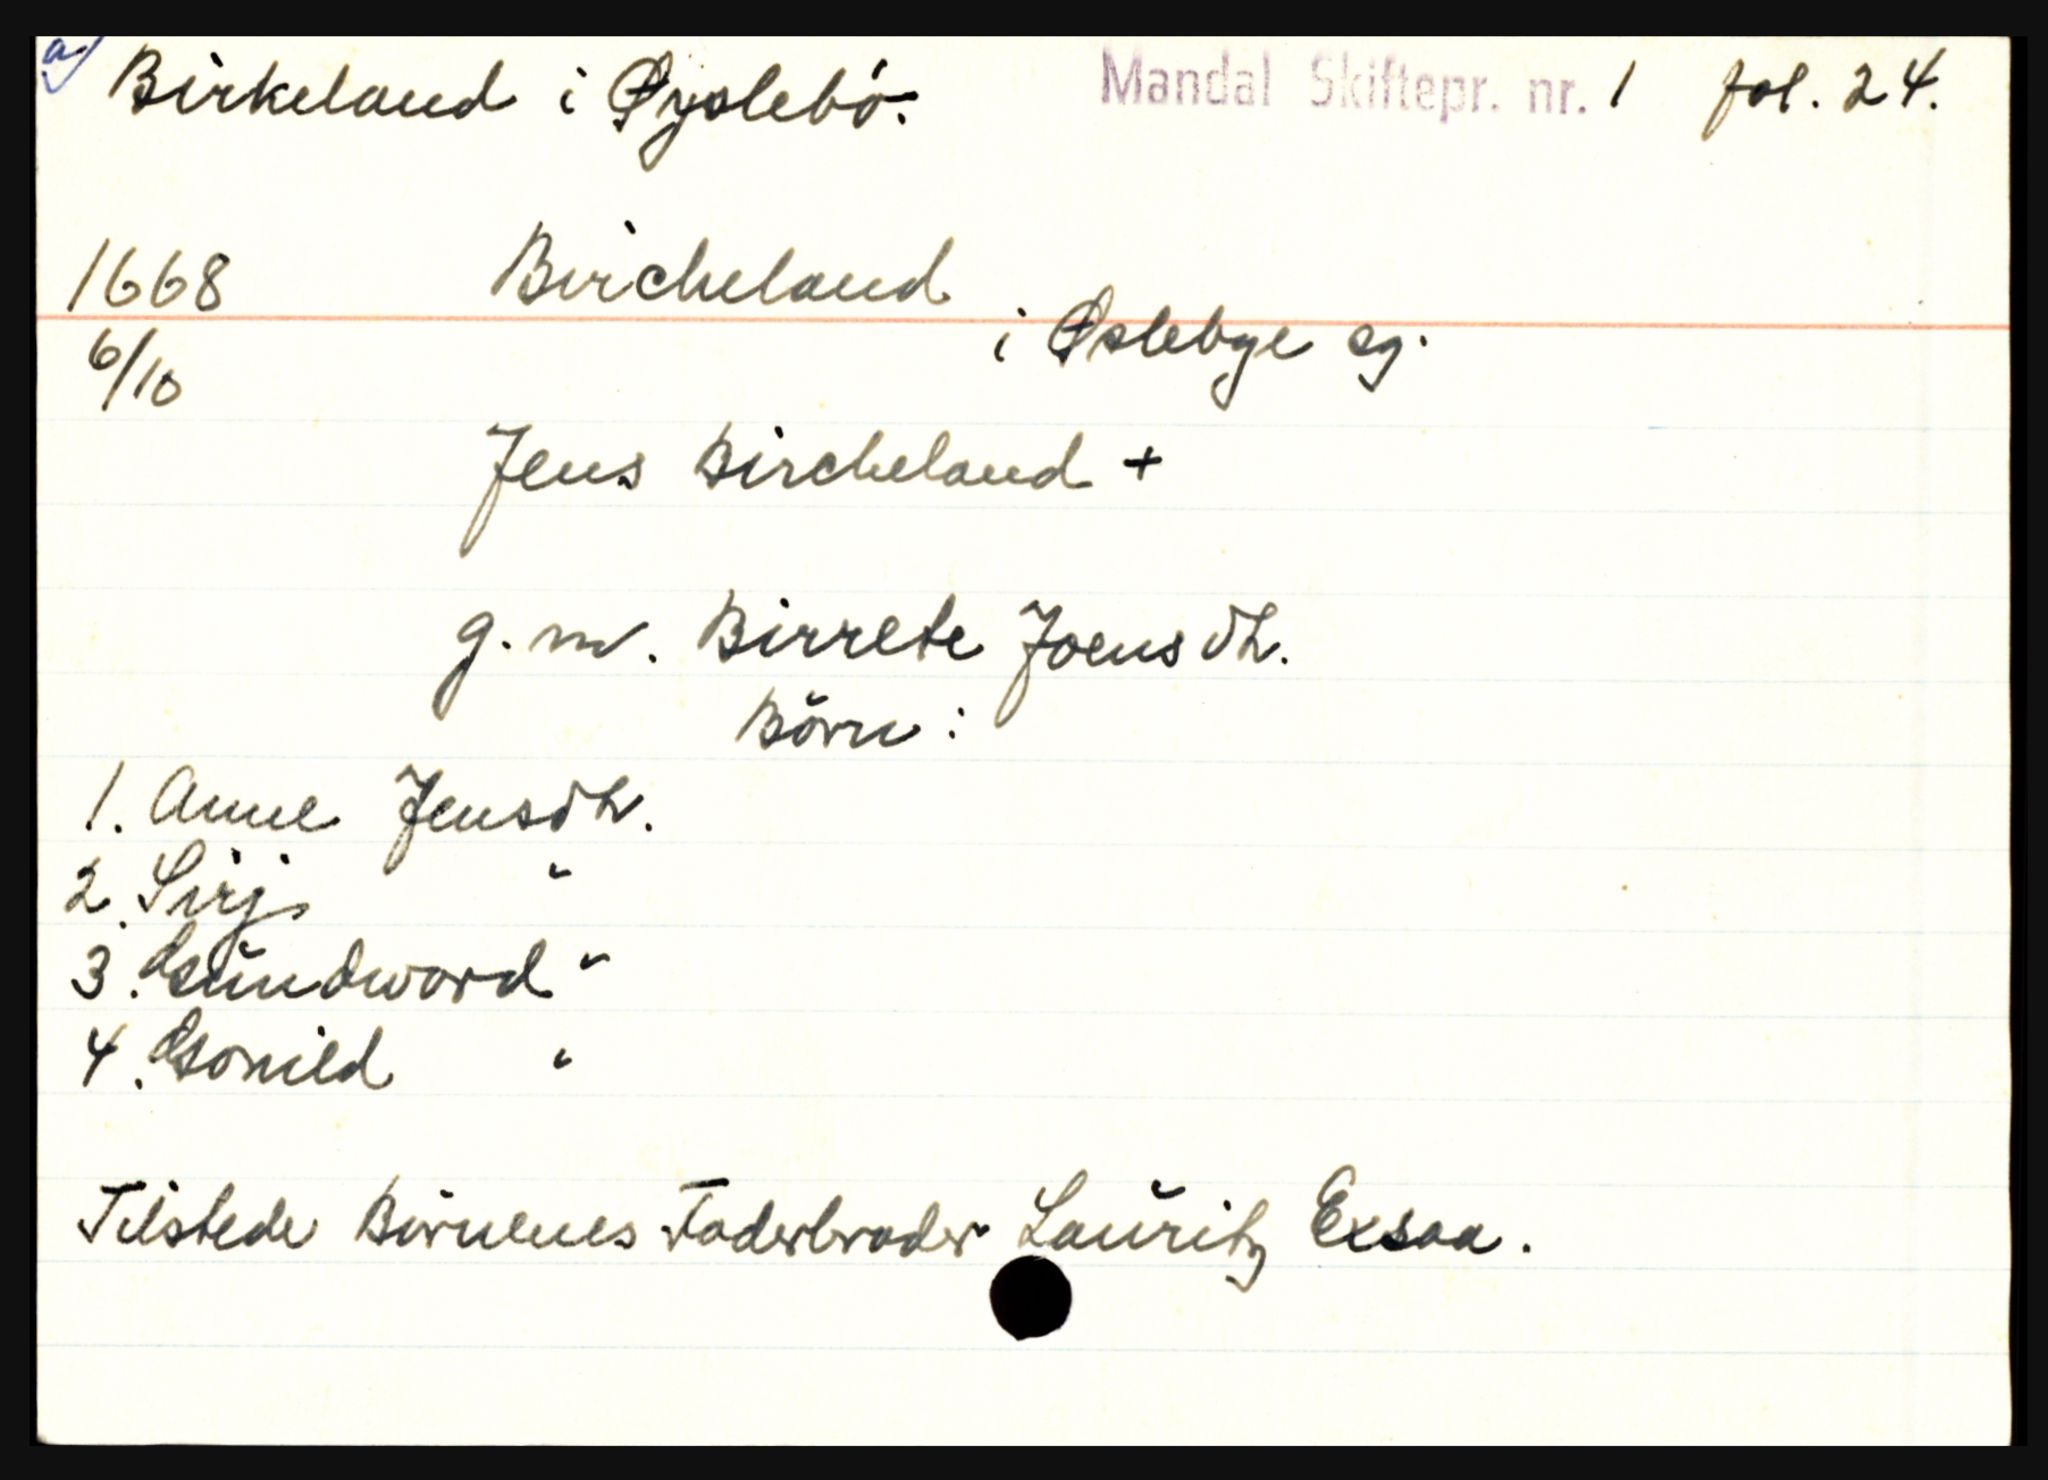 a)
Birkeland i Øyslebö. Mandal Skiftepr. nr. 1 fol. 24.
1668 Bircheland
6/10 i Øslebye sg.
Jens Bircheland +
g. m. Birrete Joensdt.
Börn:
1. Anne Jensdt.
2. Sirj "
3. Gundword "
4. Gonild "
Tilstede Börnenes Faderbroder Lauritz Exsaa.